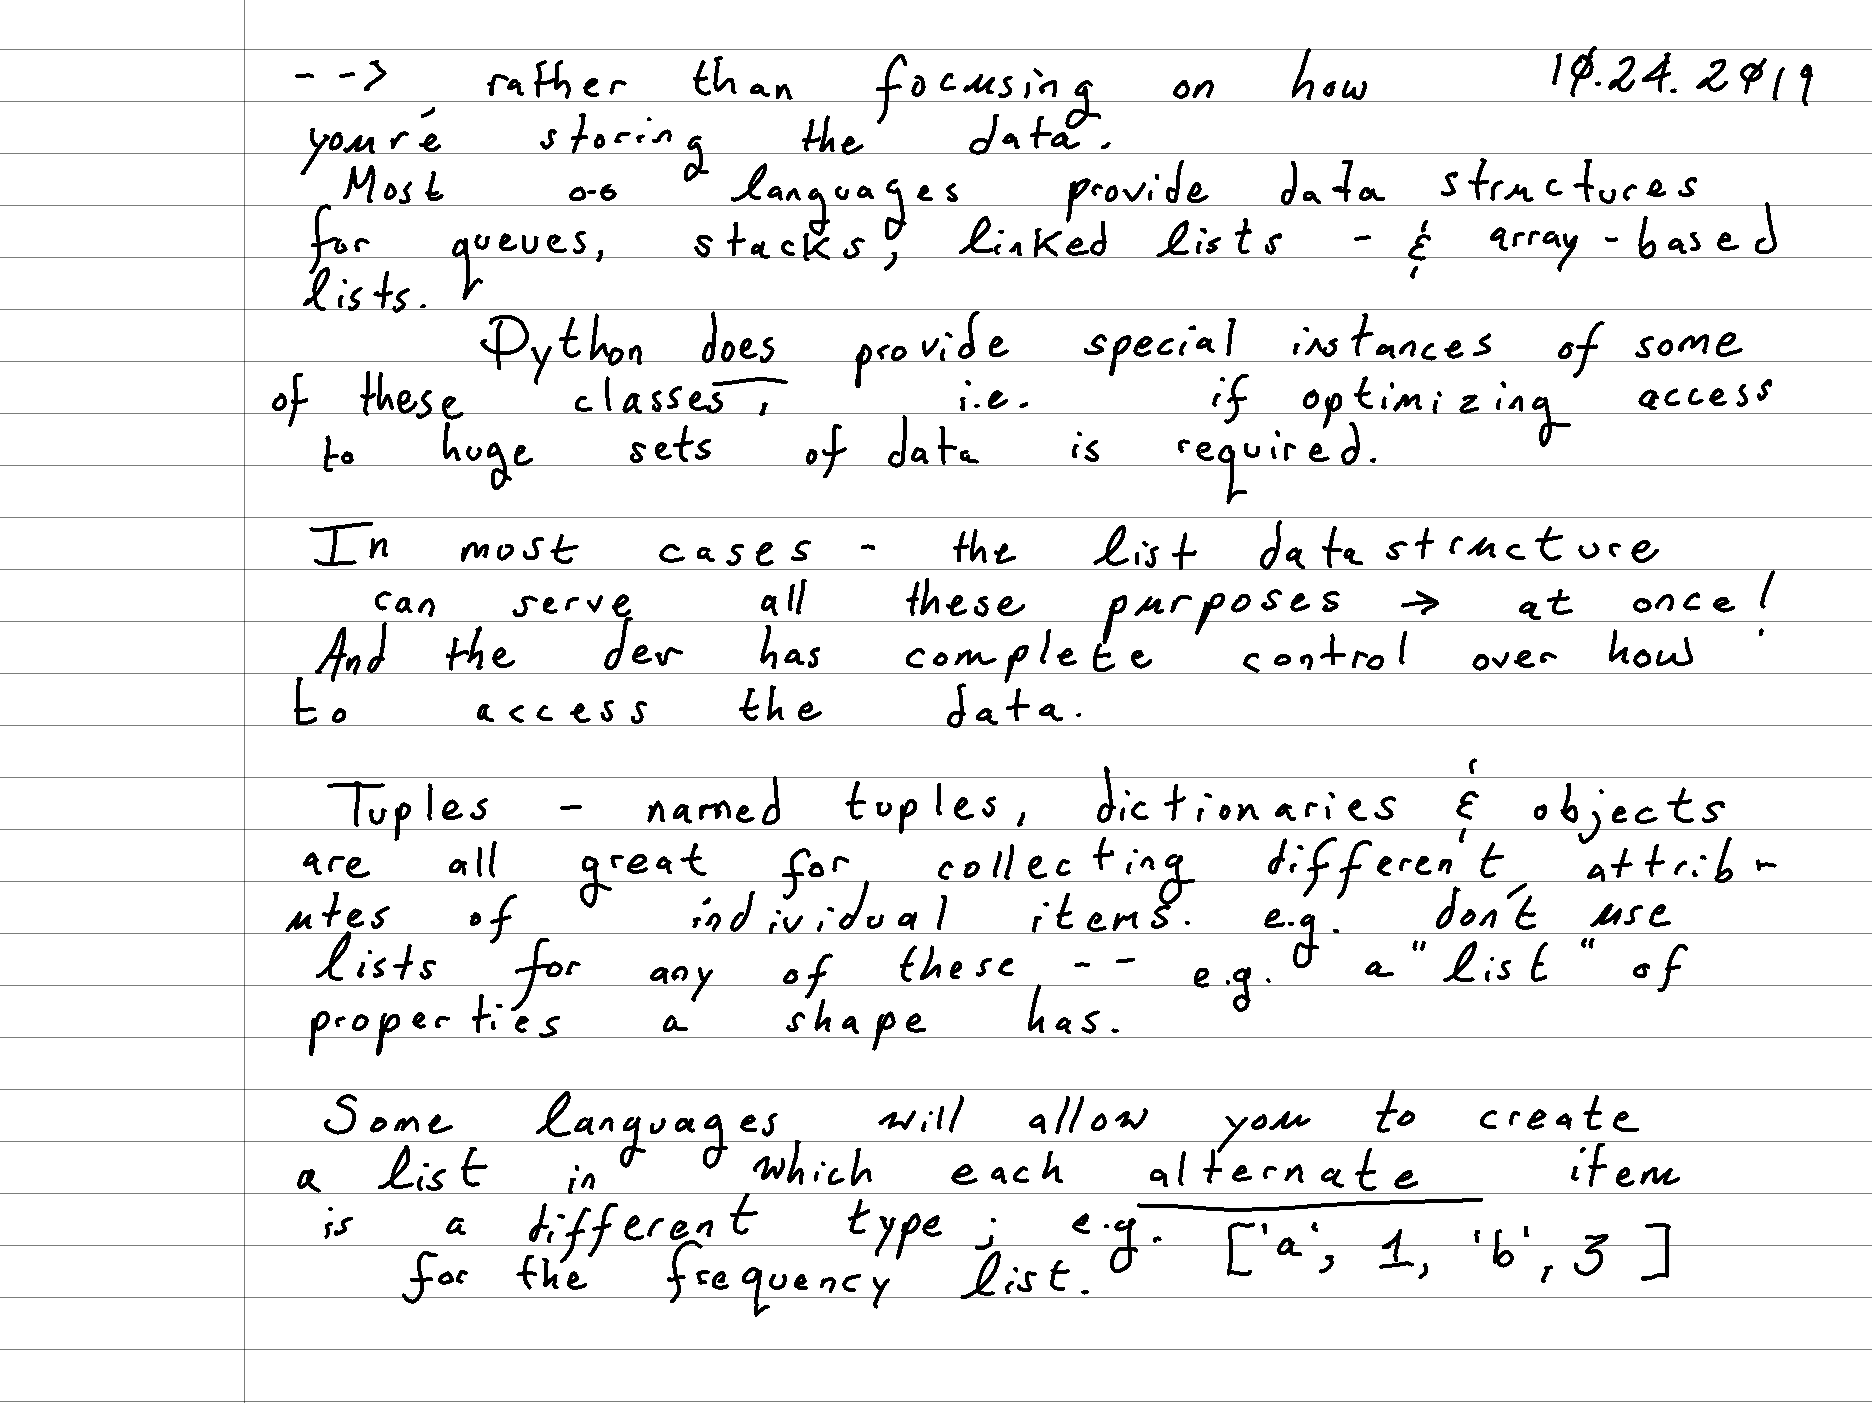 --> rather than focusing on how 10.24.2019
you're storing the data.
Most o-o languages provide data structures
for queues, stacks, linked lists - & array-based
lists.
Python does provide special instances of some
of these classes, i.e. if optimizing access
to huge sets of data is required.
In most cases - the list data structure
can serve all these purposes → at once!
And the dev has complete control over how
to access the data.
Tuples - named tuples, dictionaries & objects
are all great for collecting different attrib-
utes of individual items. e.g. don't use
lists for any of these -- e.g. a "list" of
properties a shape has.
Some languages will allow you to create
a list in which each alternate item
is a different type; e.g. ['a', 1, 'b', 3]
for the frequency list.